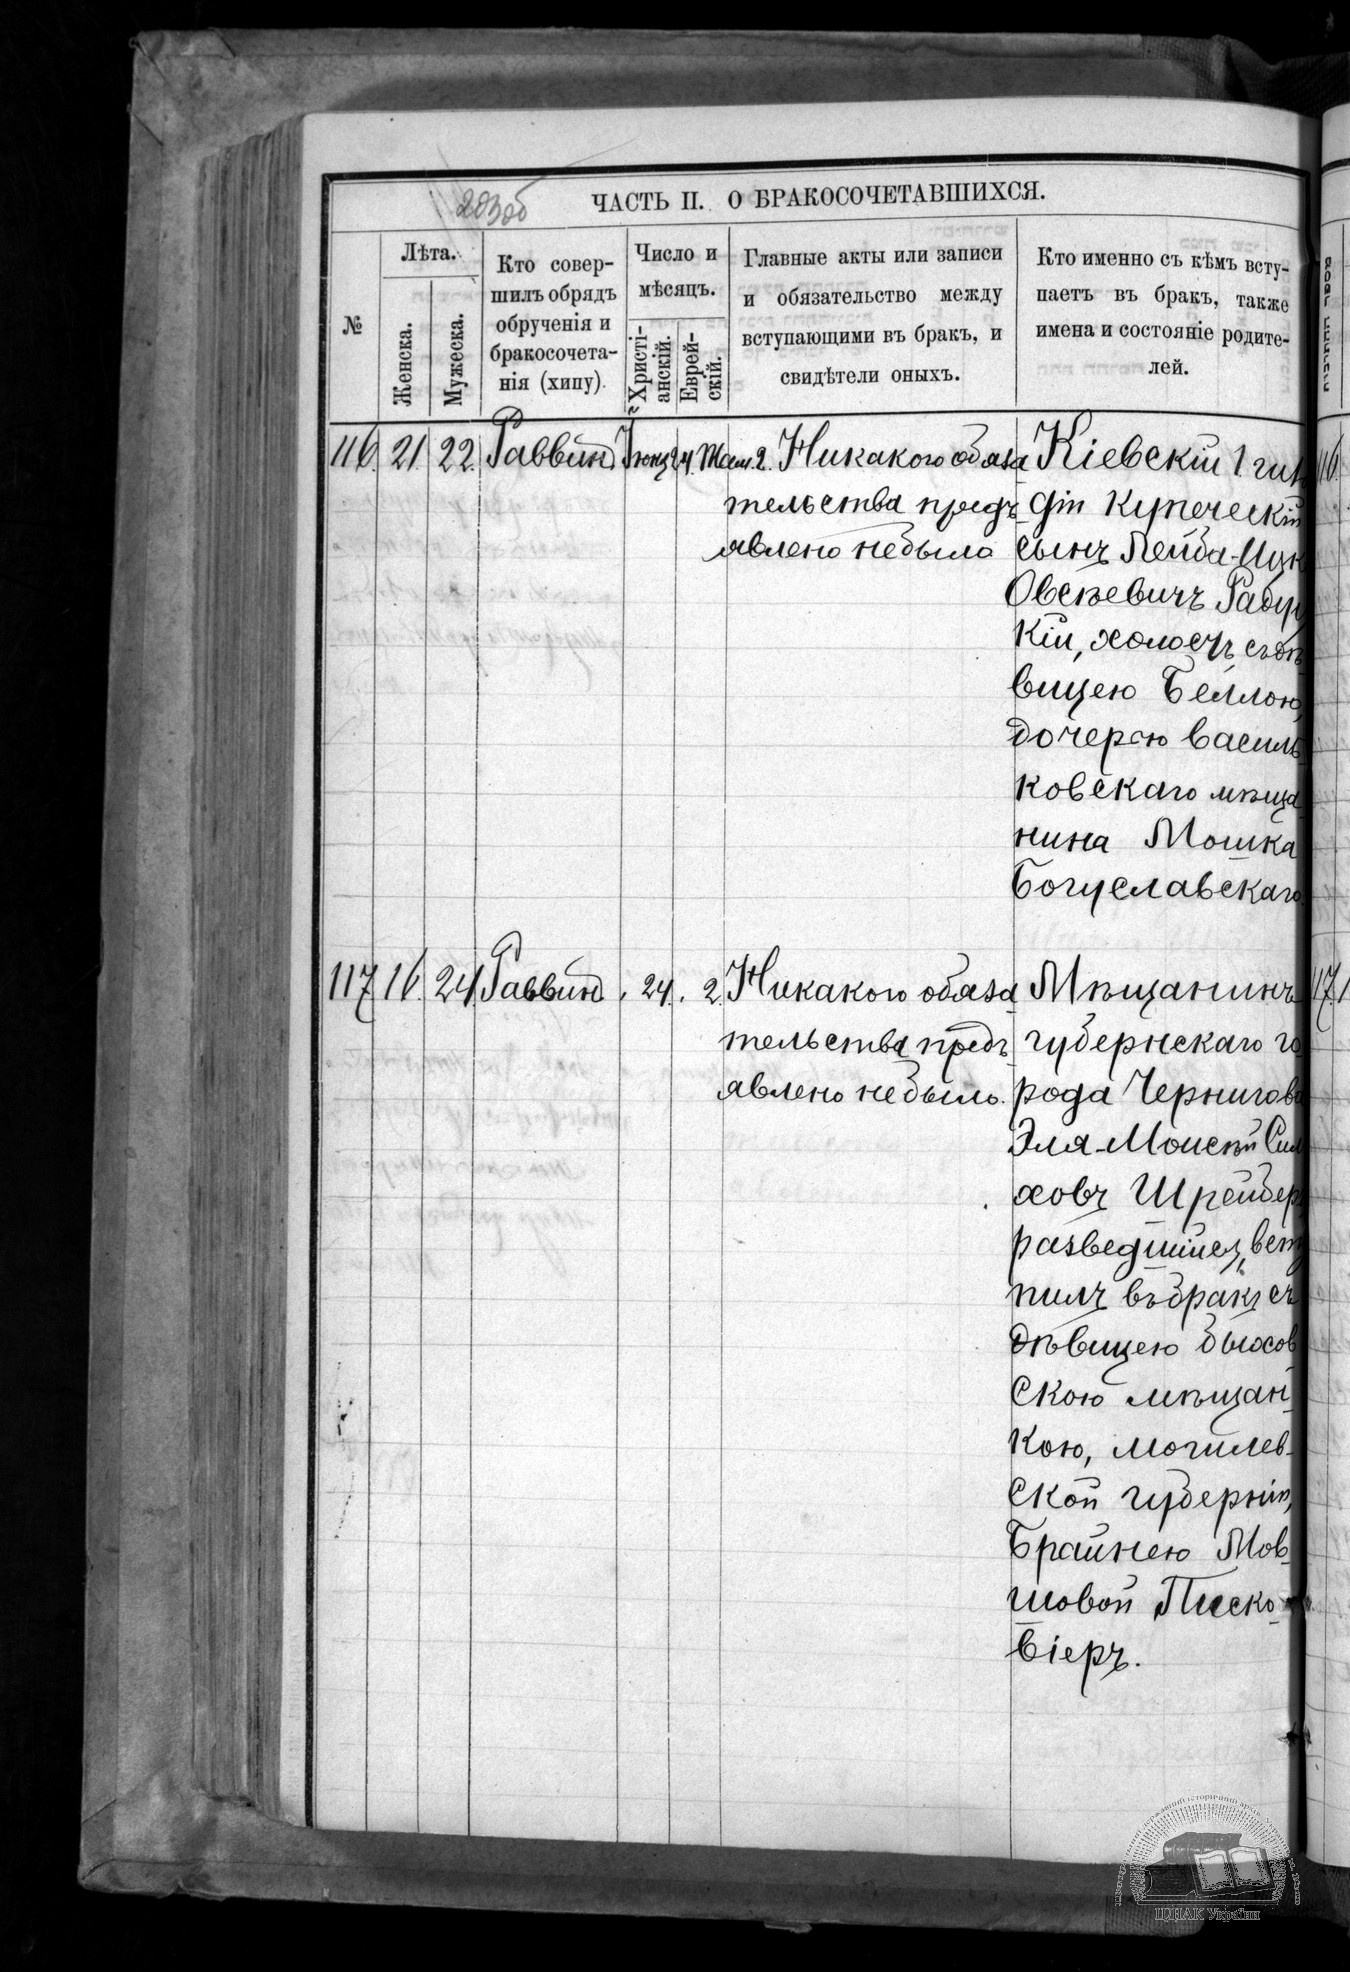 203об
ЧАСТЬ II. О БРАКОСОЧЕТАВШИХСЯ.
№
Лѣта.
Женска.
Мужеска.
Кто совер-
шилъ обрядъ
обрученія и
бракосочета-
нія (хипу).
Число и
мѣсяцъ.
Христі-
анскій.
Еврей-
скій.
Главные акты или записи
и обязательство между
вступающими въ бракъ, и
свидѣтели оныхъ.
Кто именно съ кѣмъ всту-
паетъ въ бракъ, также
имена и состояніе родите-
лей.
116. 21. 22. Раввинъ 24. 2. Никакого обяза
тельства предъ
явлено небыло
Кіевскій 1 гил
діи Купеческій
сынъ Лейба-Ицк
Овсѣевичъ
кій, холостъ съ дѣ
вицею Беллою,
дочерью василь
ковскаго мѣща
нина Мошка
Богуславскаго.
117 16. 24 Раввинъ . 24. 2. Никакого обяза
тельства предъ
явлено небыло.
Мѣщанинъ
губернскаго го
рода Чернигова
Эля-Моисей Сим
ховъ Шрейбер
разведшійся, всту
пилъ въ бракъ съ
дѣвицею быхов
скою мѣщан-
кою, могилев-
ской губерніи,
Брайнею Мов-
шовой Писко-
віеръ.
116
117. 1
ЦДІАК України